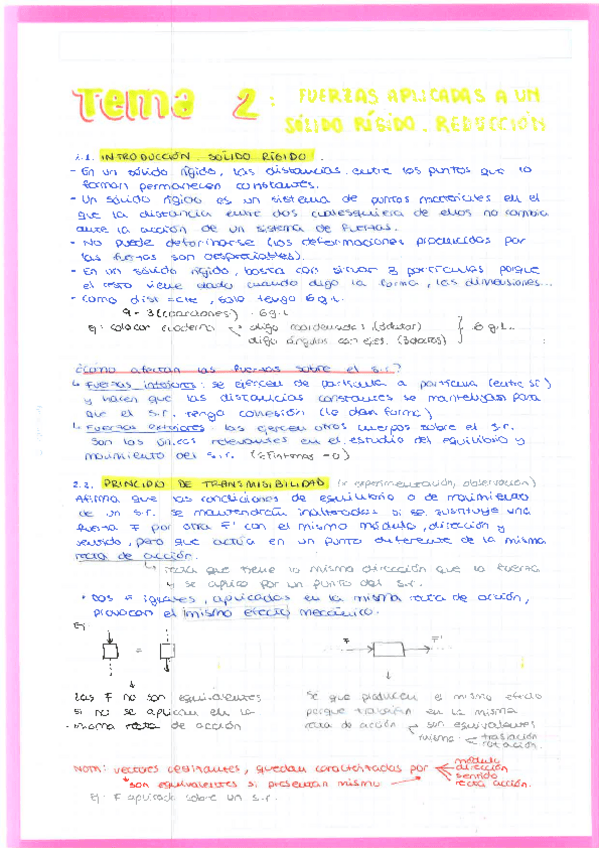 Tema 2: FUERZAS APLICADAS A UN
SÓLIDO RÍGIDO. REDUCCIÓN
2.1. INTRODUCCIÓN. SÓLIDO RÍGIDO.
- En un sólido rígido, las distancias entre los puntos que lo
forman permanecen constantes.
- Un sólido rígido es un sistema de puntos materiales en el
que la distancia entre dos cualesquiera de ellos no cambia
ante la acción de un sistema de fuerzas.
- No puede deformarse (las deformaciones producidas por
las fuerzas son despreciables).
- En un sólido rígido, basta con situar 3 partículas porque
el resto viene dado cuando digo la forma, las dimensiones...
- Como dist = cte, solo tengo 6 g.l.
9 - 3 (ecuaciones) = 6 g.l.
Ej: colocar cuaderno digo coordenadas (3 datos)
digo ángulos con ejes. (3 datos) 6 g.l.
¿Cómo afectan las fuerzas sobre el s.r.?
Fuerzas interiores: se ejercen de partícula a partícula (entre sí)
y hacen que las distancias constantes se mantengan para
que el s.r. tenga cohesión (le dan forma)
Fuerzas exteriores: las ejercen otros cuerpos sobre el s.r.
Son las únicas relevantes en el estudio del equilibrio y
movimiento del s.r. (ΣFinternas = 0)
2.2. PRINCIPIO DE TRANSMISIBILIDAD (x experimentación, observación)
Afirma que las condiciones de equilibrio o de movimiento
de un s.r. se mantendrán inalteradas si se sustituye una
fuerza F por otra F' con el mismo módulo, dirección y
sentido, pero que actúa en un punto diferente de la misma
recta de acción.
recta que tiene la misma dirección que la fuerza
y se aplica por un punto del s.r.
• Dos F iguales, aplicadas en la misma recta de acción,
provocan el mismo efecto mecánico.
Ej:
=
F F'
Las F no son equivalentes
si no se aplican en la
misma recta de acción
Sé que producen el mismo efecto
porque trabajan en la misma
recta de acción son equivalentes
mismo traslación
rotación.
NOTA: vectores deslizantes, quedan caracterizados por módulo
dirección
sentido
recta acción.
son equivalentes si presentan mismo
Ej: F aplicada sobre un s.r.